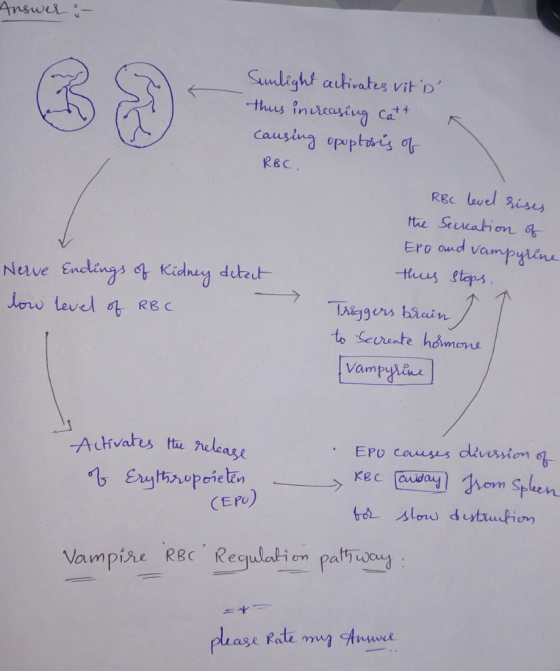 Answer :-
Sunlight activates vit 'D'
thus increasing Ca++
causing apoptosis of
RBC.
RBC level rises
the Secreation of
EPO and vampyrine
thus stops.
Nerve Endings of Kidney detect
low level of RBC
Triggers brain
to Secreate hormone
Vampyrine
Activates the release
of Erythropoieten
(EPO)
EPO causes diversion of
RBC away from Spleen
for slow distruction
Vampire 'RBC' Regulation pathway :
=*=
please Rate my Answer